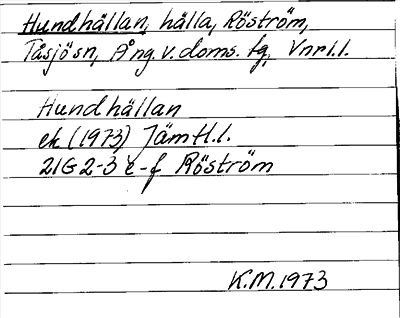 Hundhällan, hälla, Röström,
Tåsjösn, Ång. v. doms. fg, Vnrl.l.
Hundhällan
ek (1973) Jämtl.l.
21G 2-3 e-f Röström
K.M. 1973